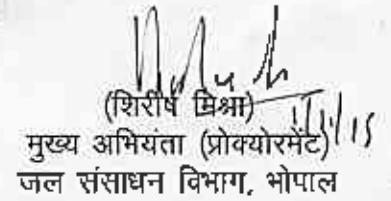 (शिरीष मिश्रा)
मुख्य अभियंता (प्रोक्योरमेंट)
जल संसाधन विभाग, भोपाल